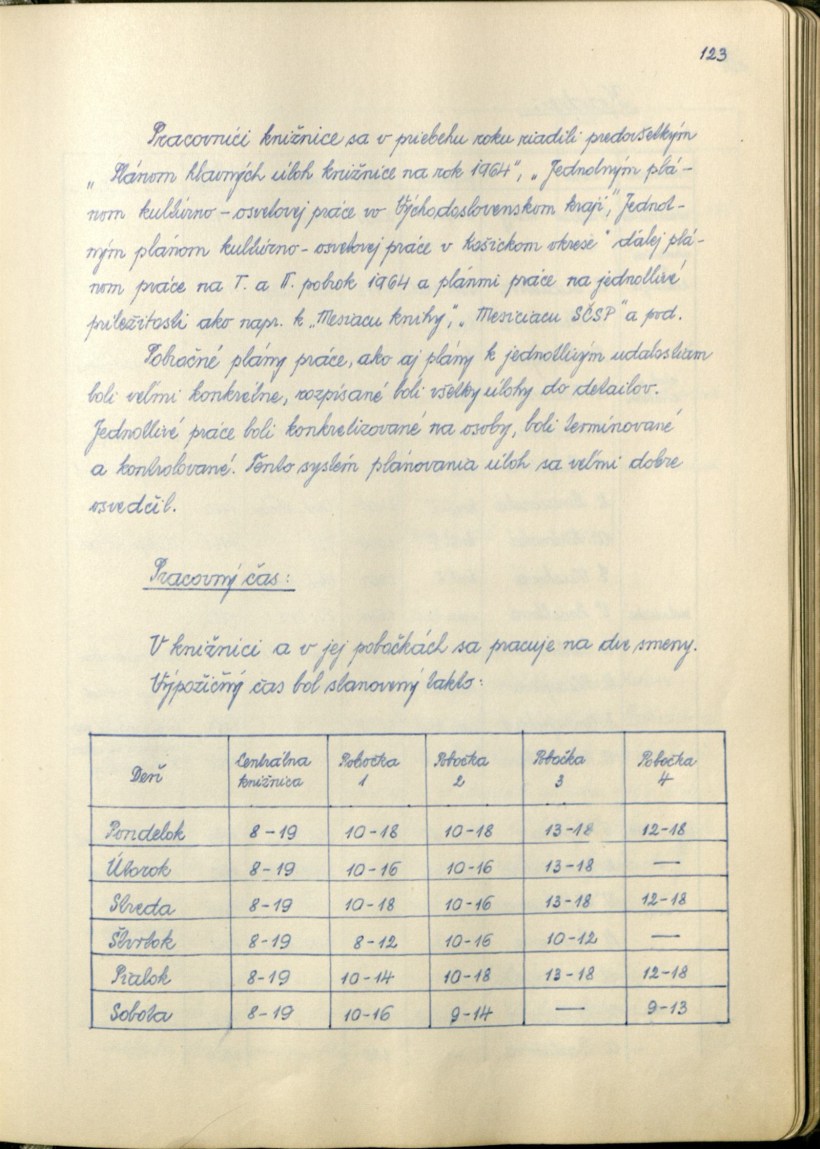 123
Pracovníci knižnice sa v priebehu roku riadili predovšetkým
„Plánom hlavných úloh knižnice na rok 1964", „Jednotným plá-
nom kultúrno-osvetovej práce vo Východoslovenskom kraji", „Jednot-
ným plánom kultúrno-osvetovej práce v Košickom okrese" ďalej plá-
nom práce na I. a II. polrok 1964 a plánmi práce na jednotlivé
príležitosti ako napr. k „Mesiacu knihy", „Mesiciacu SČSP" a pod.
Pobočné plány práce, ako aj plány k jednotlivým udalostiam
boli veľmi konkrétne, rozpísané boli všetky úlohy do detailov.
Jednotlivé práce boli konkretizované na osoby, boli termínované
a kontrolované. Tento systém plánovania úloh sa veľmi dobre
osvedčil.
Pracovný čas:
V knižnici a v jej pobočkách sa pracuje na dve smeny.
Výpožičný čas bol stanovený takto:
Deň Centrálna knižnica Pobočka 1 Pobočka 2 Pobočka 3 Pobočka 4
Pondelok 8-19 10-18 10-18 13-18 12-18
Útorok 8-19 10-16 10-16 13-18 —
Streda 8-19 10-18 10-16 13-18 12-18
Štvrtok 8-19 8-12 10-16 10-12 —
Piatok 8-19 10-14 10-18 13-18 12-18
Sobota 8-19 10-16 9-14 — 9-13